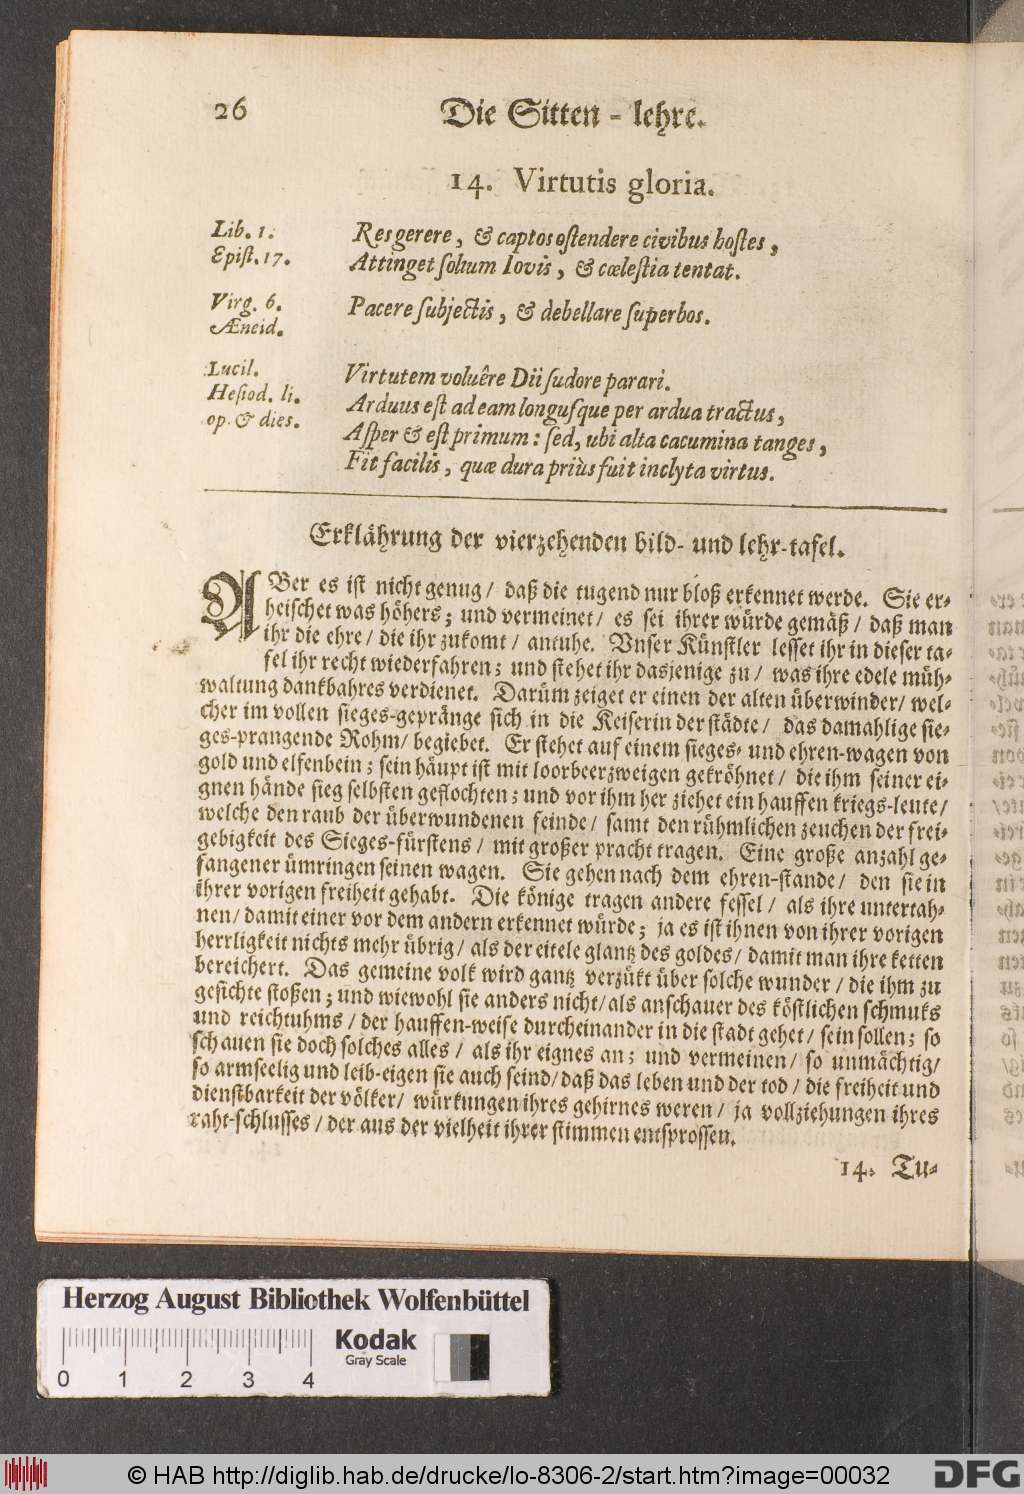 26
Die Sitten-lehre.
14. Virtutis gloria.
Lib. 1.
Epiſt. 17.
Res gerere, & captos oſtendere civibus hoſtes,
Attinget ſolium Iovis, & cœleſtia tentat.
Virg. 6.
Æneid.
Pacere ſubjectis, & debellare ſuperbos.
Lucil.
Heſiod. li.
op. & dies.
Virtutem voluêre Dii ſudore parari.
Arduus eſt ad eam longuſque per ardua tractus,
Aſper & eſt primum: ſed, ubi alta cacumina tanges,
Fit facilis, quæ dura priùs fuit inclyta virtus.
Erklährung der vierzehenden bild- und lehr-tafel.
ABer es iſt nicht genug / daß die tugend nur bloß erkennet werde. Sie er-
heiſchet was höhers; und vermeinet / es ſei ihrer würde gemäß / daß man
ihr die ehre / die ihr zukomt / antuhe. Unſer Künſtler leſſet ihr in dieſer ta-
fel ihr recht wiederfahren; und ſtehet ihr dasjenige zu / was ihre edele müh-
waltung dankbahres verdienet. Darüm zeiget er einen der alten überwinder / wel-
cher im vollen ſieges-gepränge ſich in die Keiſerin der ſtädte / das damahlige ſie-
ges-prangende Rohm / begiebet. Er ſtehet auf einem ſieges- und ehren-wagen von
gold und elfenbein; ſein häupt iſt mit loorbeerzweigen gekröhnet / die ihm ſeiner ei-
gnen hände ſieg ſelbſten geflochten; und vor ihm her ziehet ein hauffen kriegs-leute /
welche den raub der überwundenen feinde / ſamt den rühmlichen zeuchen der frei-
gebigkeit des Sieges-fürſtens / mit großer pracht tragen. Eine große anzahl ge-
fangener ümringen ſeinen wagen. Sie gehen nach dem ehren-ſtande / den ſie in
ihrer vorigen freiheit gehabt. Die könige tragen andere feſſel / als ihre untertah-
nen / damit einer vor dem andern erkennet würde; ja es iſt ihnen von ihrer vorigen
herrligkeit nichts mehr übrig / als der eitele glantz des goldes / damit man ihre ketten
bereichert. Das gemeine volk wird gantz verzükt über ſolche wunder / die ihm zu
geſichte ſtoßen; und wiewohl ſie anders nicht / als anſchauer des köſtlichen ſchmuks
und reichtuhms / der hauffen-weiſe durcheinander in die ſtadt gehet / ſein ſollen; ſo
ſchauen ſie doch ſolches alles / als ihr eignes an; und vermeinen / ſo unmächtig /
ſo armſeelig und leib-eigen ſie auch ſeind / daß das leben und der tod / die freiheit und
dienſtbarkeit der völker / würkungen ihres gehirnes weren / ja vollziehungen ihres
raht-ſchluſſes / der aus der vielheit ihrer ſtimmen entſproſſen.
14. Tu-
Herzog August Bibliothek Wolfenbüttel
Kodak
Gray Scale
0 1 2 3 4
© HAB http://diglib.hab.de/drucke/lo-8306-2/start.htm?image=00032
DFG